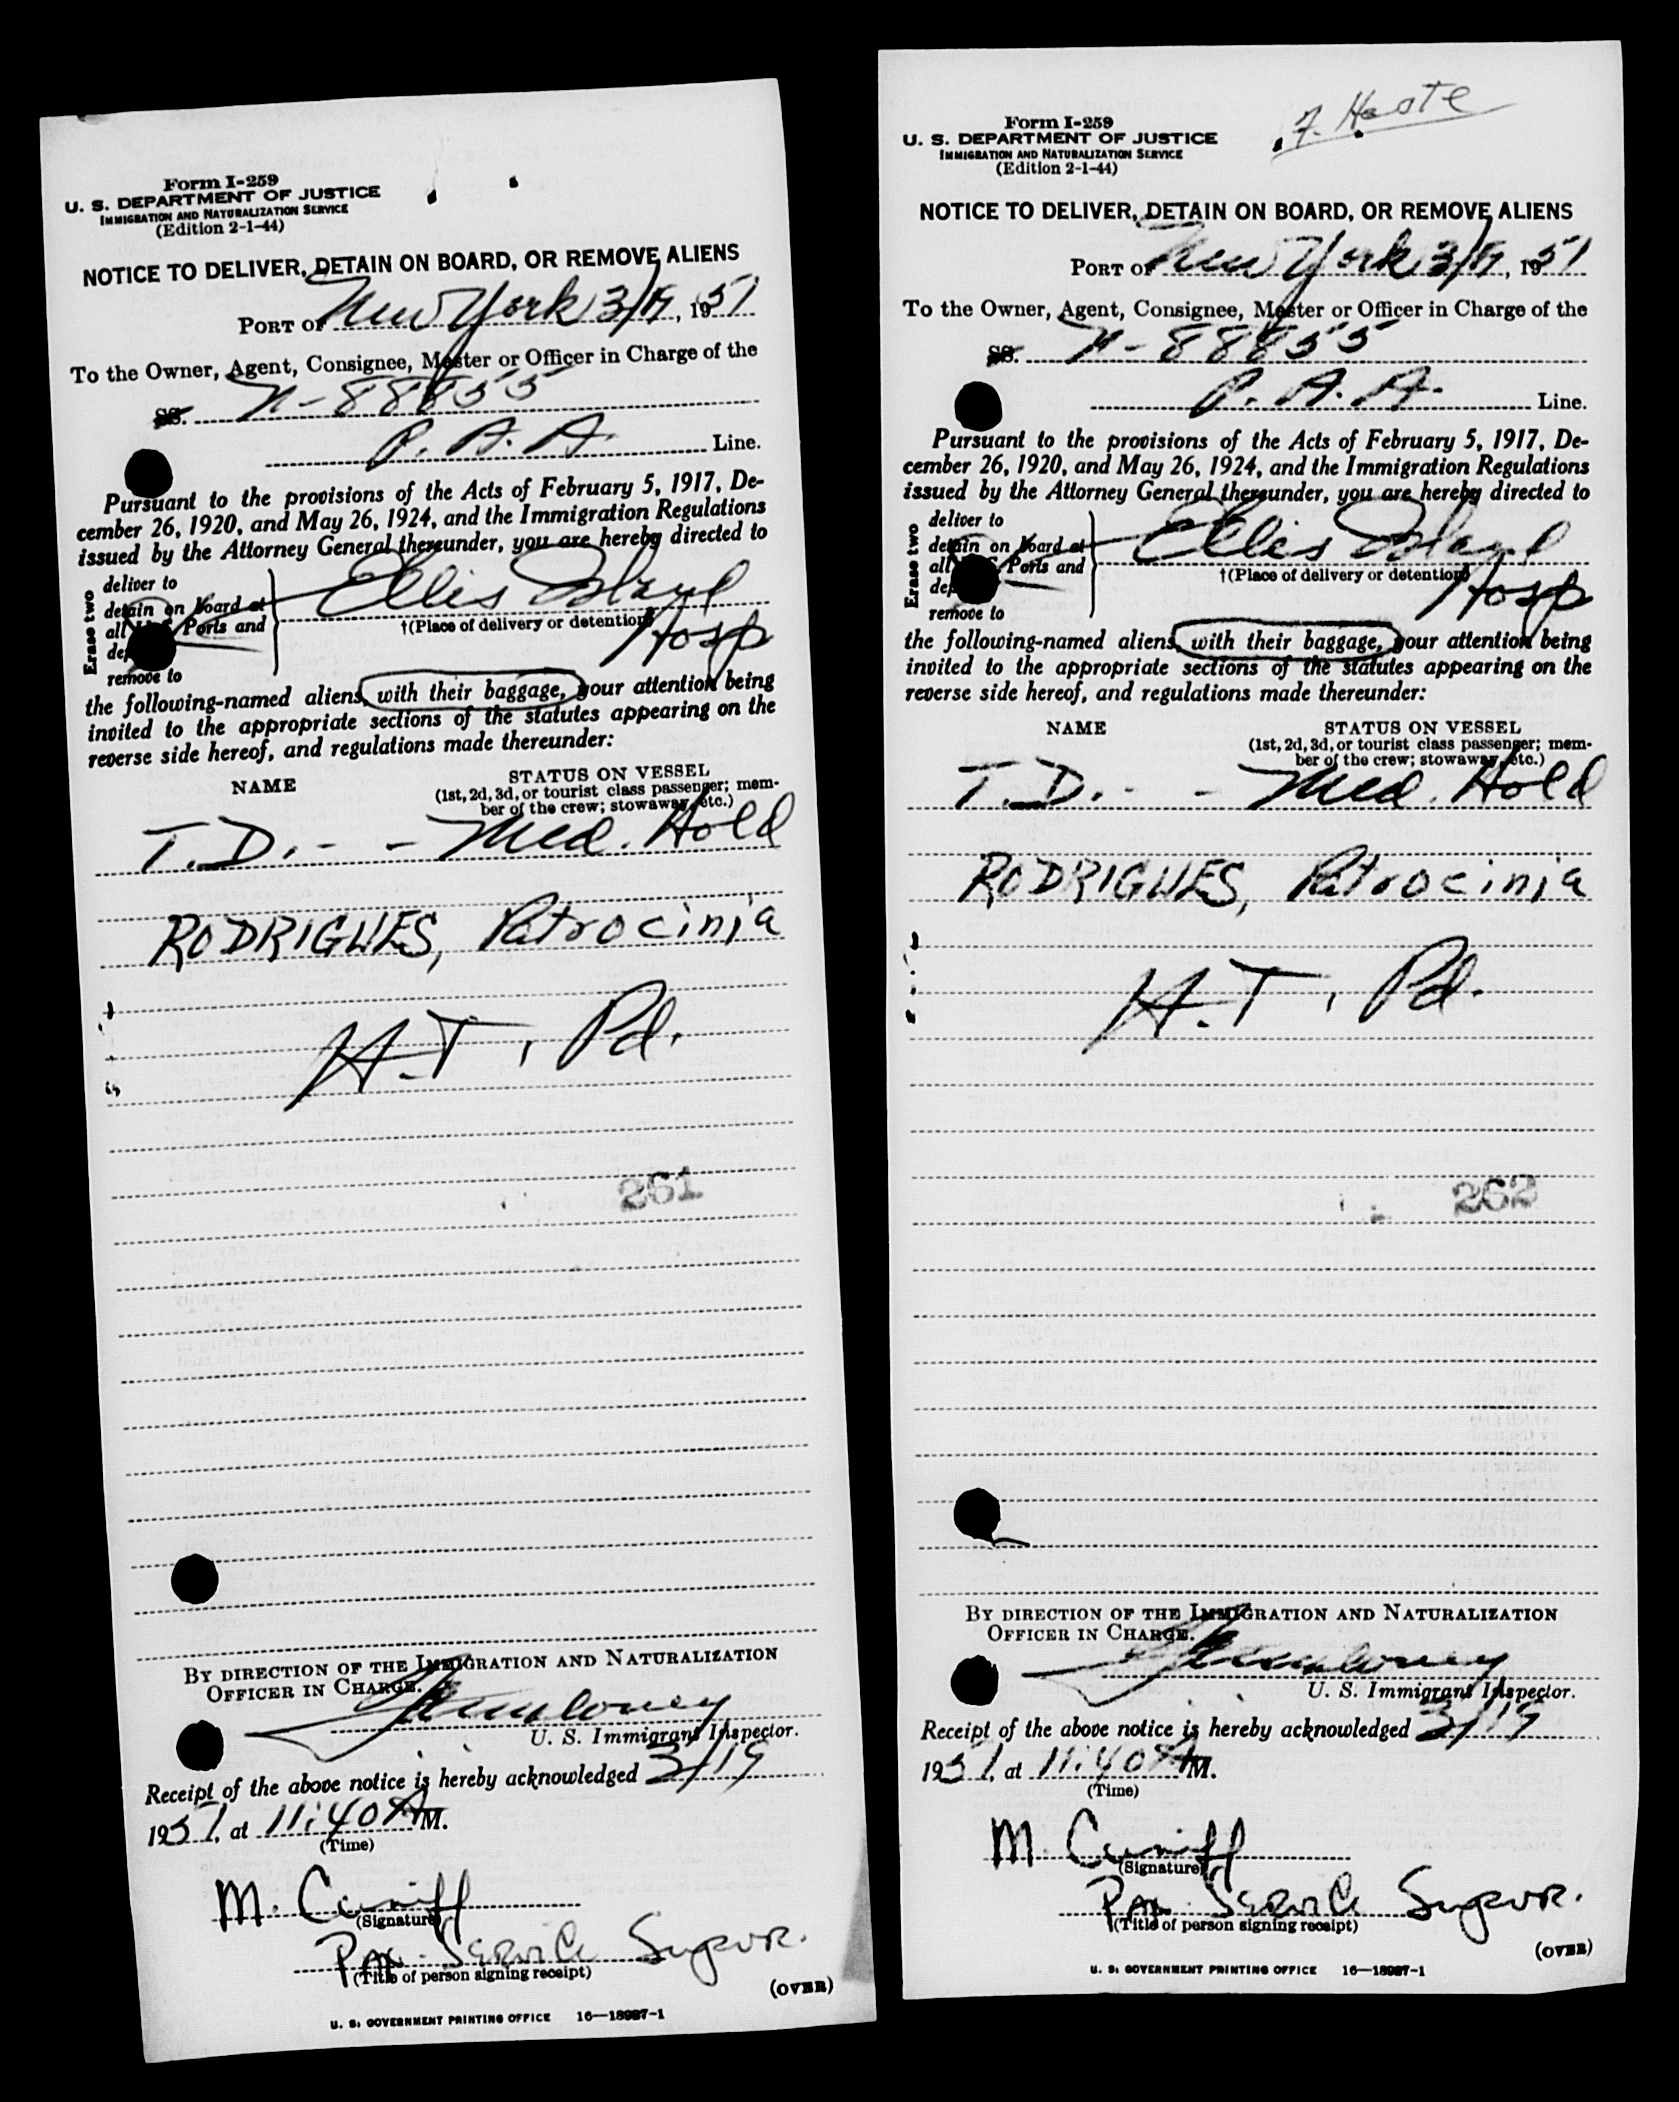 Form I-259
U. S. DEPARTMENT OF JUSTICE
IMMIGRATION AND NATURALIZATION SERVICE
(Edition 2-1-44)
NOTICE TO DELIVER, DETAIN ON BOARD, OR REMOVE ALIENS
PORT OF New York 3/19, 1951
To the Owner, Agent, Consignee, Master or Officer in Charge of the
SS. N-88855
P. A. A. Line.
Pursuant to the provisions of the Acts of February 5, 1917, De-
cember 26, 1920, and May 26, 1924, and the Immigration Regulations
issued by the Attorney General thereunder, you are hereby directed to
Erase two
deliver to
detain on board at
all Ports and
remove to
Ellis Island
†(Place of delivery or detention)
Hosp
the following-named aliens, with their baggage, your attention being
invited to the appropriate sections of the statutes appearing on the
reverse side hereof, and regulations made thereunder:
NAME STATUS ON VESSEL
(1st, 2d, 3d, or tourist class passenger; mem-
ber of the crew; stowaway, etc.)
T.D. - - Med. Hold
RODRIGUES, Patrocinia
H.T. Pd.
261
BY DIRECTION OF THE IMMIGRATION AND NATURALIZATION
OFFICER IN CHARGE.
U. S. Immigrant Inspector.
Receipt of the above notice is hereby acknowledged 3/19
1951, at 11:40 AM.
(Time)
M. Cuniff
(Signature)
Pax Service Supvr.
(Title of person signing receipt)
(OVER)
U. S. GOVERNMENT PRINTING OFFICE 16—18987-1
Form I-259
U. S. DEPARTMENT OF JUSTICE
IMMIGRATION AND NATURALIZATION SERVICE
(Edition 2-1-44)
NOTICE TO DELIVER, DETAIN ON BOARD, OR REMOVE ALIENS
PORT OF New York 3/19, 1951
To the Owner, Agent, Consignee, Master or Officer in Charge of the
SS. N-88855
P. A. A. Line.
Pursuant to the provisions of the Acts of February 5, 1917, De-
cember 26, 1920, and May 26, 1924, and the Immigration Regulations
issued by the Attorney General thereunder, you are hereby directed to
Erase two
deliver to
detain on board at
all Ports and
remove to
Ellis Island
†(Place of delivery or detention)
Hosp
the following-named aliens, with their baggage, your attention being
invited to the appropriate sections of the statutes appearing on the
reverse side hereof, and regulations made thereunder:
NAME STATUS ON VESSEL
(1st, 2d, 3d, or tourist class passenger; mem-
ber of the crew; stowaway, etc.)
T.D. - - Med. Hold
RODRIGUES, Patrocinia
H.T. Pd.
262
BY DIRECTION OF THE IMMIGRATION AND NATURALIZATION
OFFICER IN CHARGE.
U. S. Immigrant Inspector.
Receipt of the above notice is hereby acknowledged 3/19
1951, at 11:40 AM.
(Time)
M Cuniff
(Signature)
Pax Service Supvr.
(Title of person signing receipt)
(OVER)
U. S. GOVERNMENT PRINTING OFFICE 16—18987-1